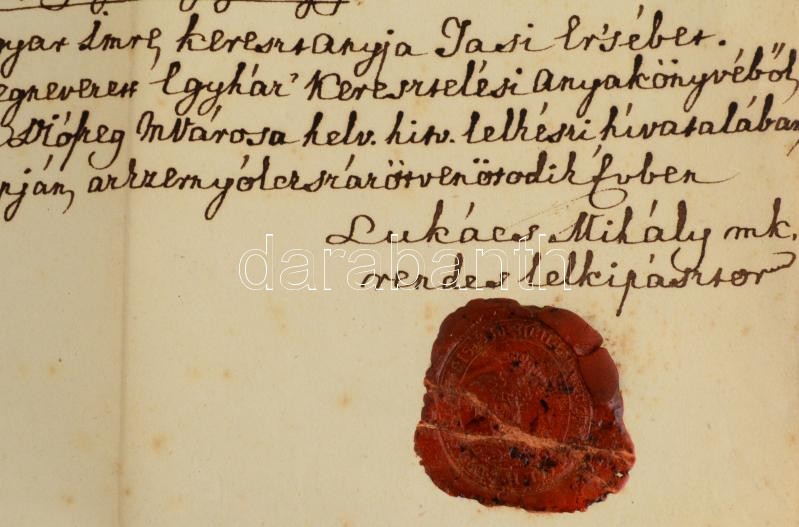 gyar Imre, keresztanyja Jasi Ersébet.
egnevezett Egyház' Keresztelési Anyakönyvéből,
Diószeg MVárosa helv. hitv. lelkészi hivatalában
nján, aezzernyólczszázötvenötödik Évben
Lukács Mihály mk.
rendes lelkipásztor
darabanth